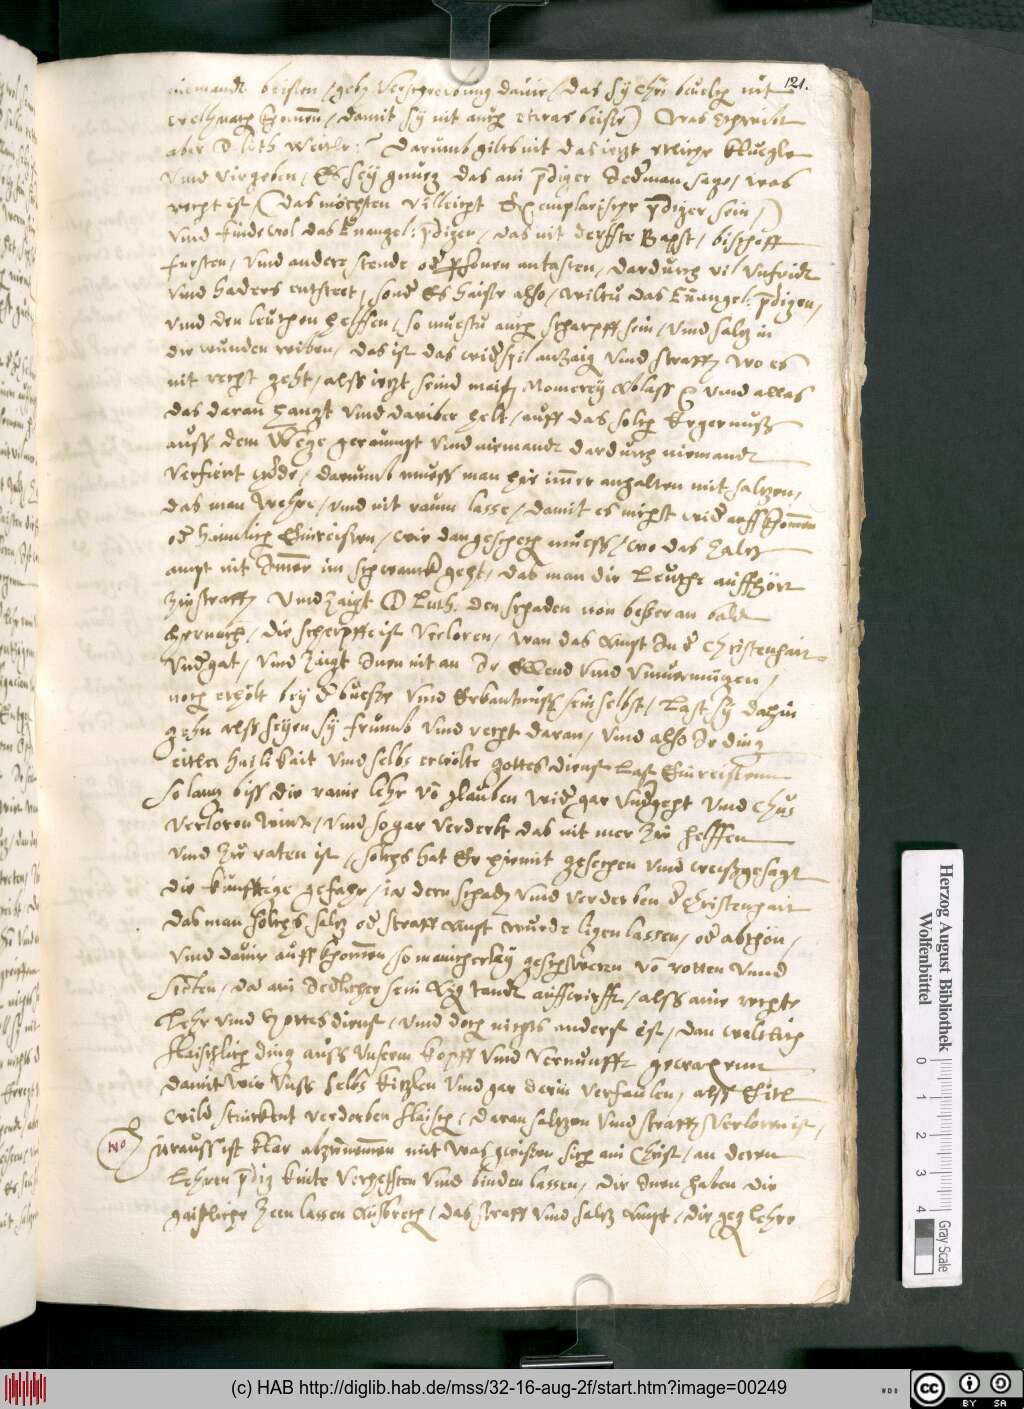 121.
niemandt beissen / gebt
damit sy nit auch etwas beisse) Was schreibt
aber D. Luth. weitter? Darumb gilts nit das ietzt etliche kluegle
vnnd virgeben, Es sey gnueg das ain prediger Jederman sage, was
recht ist (das möchten villeicht Exemplarische prediger sein,)
vnnd künde wol das Euangel: predigen, das nit derffte Bapst, bischoff
fursten, vnnd andere stende oder personen antasten, dardurch vil vnfridt
vnnd haders entsteet, sonder Es haisse also, wiltu das Euangel: predigen,
vnnd den leuthen helffen, so muestu auch scharpff sein, vnnd saltz in
die wunden reiben, das ist das widerspil anzaig vnnd straffen wo es
nit recht geht, alss ietzt seind Ablass vnnd alles
das daran hangt vnnd dariber helt, auff das solch Ergernuß
auss dem Wege geraumpt vnnd niemandt dardurch niemandt
verfiert werde, darumb muess man hie immer anhalten mit saltzen,
das man wehre, vnnd nit raum lasse, damit es nicht wider auffkhomme
oder haimlich Einreissen, wie dan geschech muess, wo das saltz
ampt nit Immer im schwanck geht, das man die Leuthe auffhört
zu straffen Vnnd zaigt D. Luth. den schaden von besser an baldt
hernach, die scherpffe ist verloren, wan das Ampt In der christenhait
vndergat, vnnd zaigt Inen nit an Ir Ellend vnnd vnuermügen,
noch erhölt bey der buesse vnnd Erkantnuss sein selbst, Last sy dahin
gehn alss seyen sy frumb vnnd recht daran, vnnd also Ir ding
eitler hailikait vnnd selbs erwölte gottes dienst Last Einreissenn
So lang biss die raine lehr von glauben wider gar vndergeht vnnd Chus
verloren wirt, vnnd so gar verderbt das nit mer zu helffen
vnnd zu raten ist, solchs hat Er hiemit gesechen vnnd weissgesagt
die kunfftige gefahr, ia dern schaden vnnd verderben der christenhait
das man solchs saltz oder straff Ampt wurde ligen lassen, oder abthon,
vnnd dauir auff khommen so mancherlay geschwerm von rotten vnnd
Secten, da ain Jedlicher sein aigen tandt auffwirfft, alss aine rechte
Lehr vnnd Gottes dienst, vnnd doch nichts anderst ist, dan weltlich
flaischlich ding auss vnserm kopff vnnd vernunfft gewachsenn
damit wir vnss selbs kitzlen vnnd gar darin verfaulen, alss Eitl
wild stinckent verdorben flaisch, daran saltzen vnnd straffen verloren ist,
No
Hierauss ist klar abzunemmen mit was gwissen sich ain Christ, an deren
Lehren predig künte verhefften vnnd binden lassen, die Inen haben die
gaistliche Zeen lassen ausbrech, das straff vnnd saltz Ampt, die gegenlehre
Herzog August Bibliothek
Wolfenbüttel
0
1
2
3
4
Gray Scale
(c) HAB http://diglib.hab.de/mss/32-16-aug-2f/start.htm?image=00249
WDB
cc BY SA